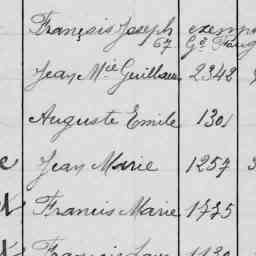 François Joseph exemp
67 Gé
Jean Mie Guillau 2342
Auguste Emile 1301
Jean Marie 1257
Francis Marie 1775